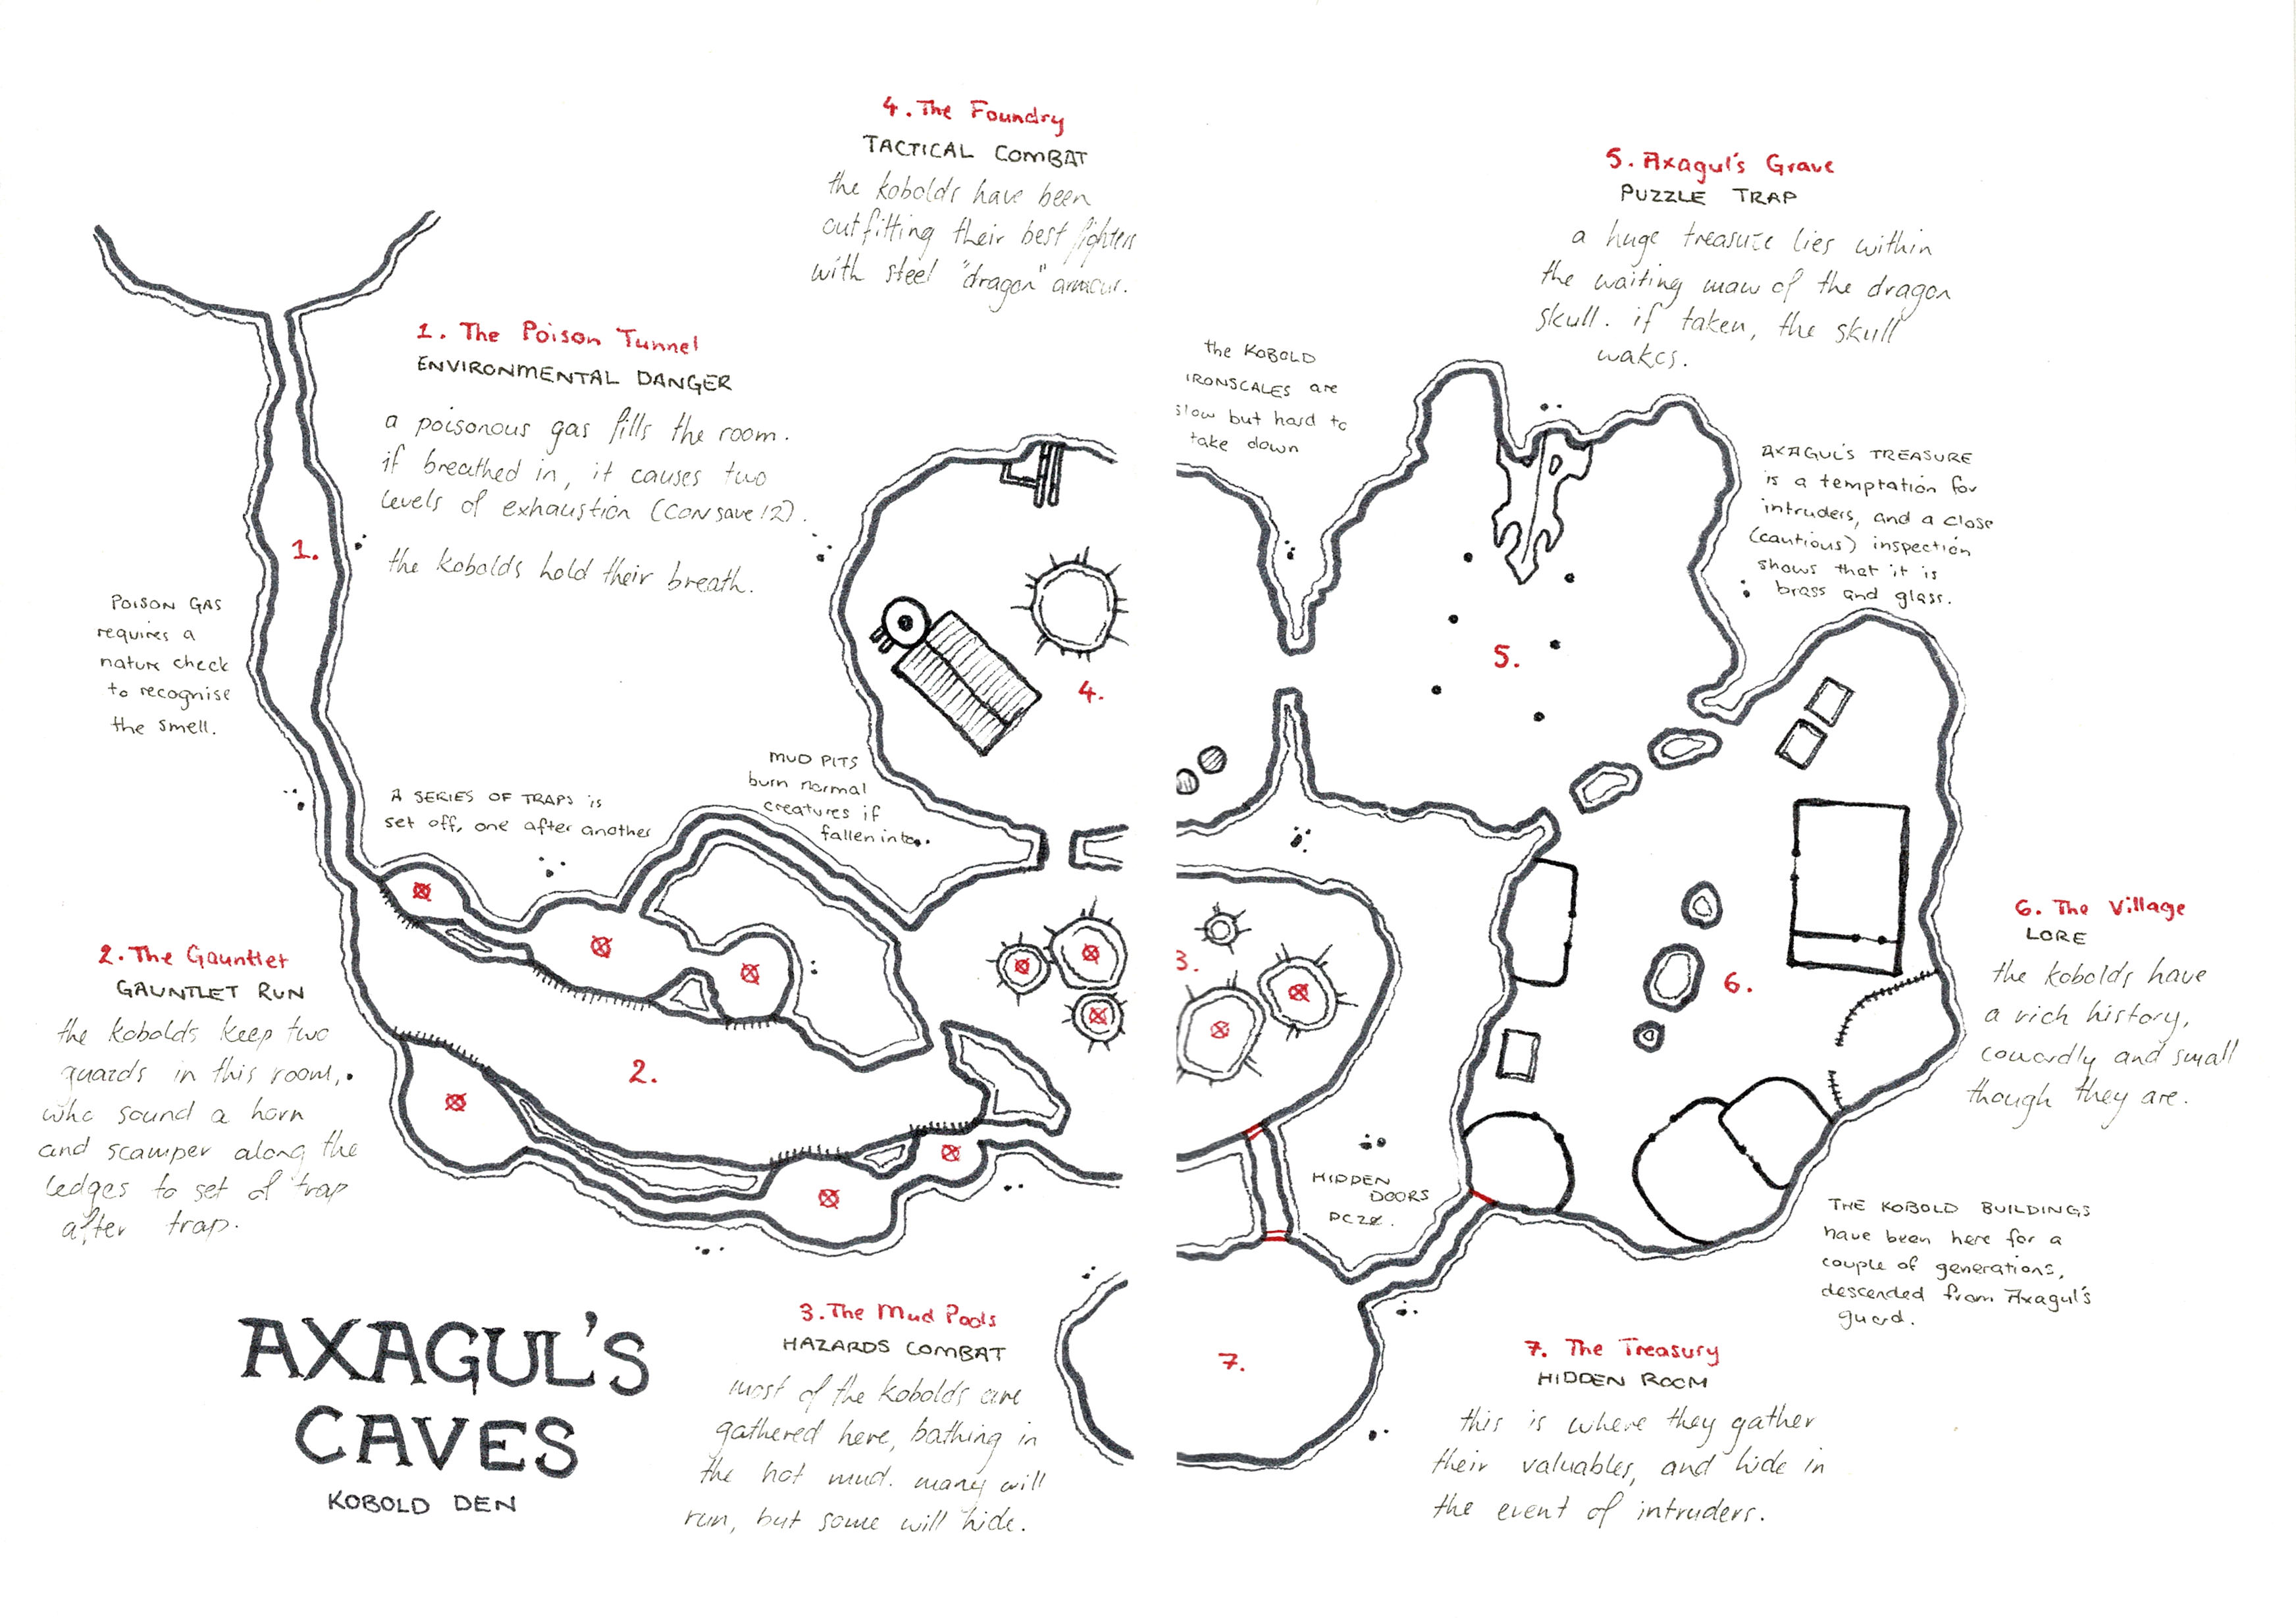 4. The Foundry
TACTICAL COMBAT
the kobolds have been
outfitting their best fighters
with steel "dragon" armour.
5. Axagul's Grave
PUZZLE TRAP
a huge treasure lies within
the waiting maw of the dragon
skull. if taken, the skull
wakes.
1. The Poison Tunnel
ENVIRONMENTAL DANGER
a poisonous gas fills the room.
if breathed in, it causes two
levels of exhaustion (CON save 12).
the kobolds hold their breath.
the KOBOLD
IRONSCALES are
slow but hard to
take down
AXAGUL'S TREASURE
is a temptation for
intruders, and a close
(cautious) inspection
shows that it is
brass and glass.
1.
POISON GAS
requires a
nature check
to recognise
the smell.
4.
5.
MUD PITS
burn normal
creatures if
fallen into.
A SERIES OF TRAPS is
set off, one after another
2. The Gauntlet
GAUNTLET RUN
the kobolds keep two
guards in this room,
who sound a horn
and scamper along the
ledges to set of trap
after trap.
2.
3.
6.
6. The Village
LORE
the kobolds have
a rich history,
cowardly and small
though they are.
HIDDEN
DOORS
THE KOBOLD BUILDINGS
have been here for a
couple of generations,
descended from Axagul's
guard.
AXAGUL'S
CAVES
KOBOLD DEN
3. The Mud Pools
HAZARDS COMBAT
most of the kobolds are
gathered here, bathing in
the hot mud. many will
run, but some will hide.
7.
7. The Treasury
HIDDEN ROOM
this is where they gather
their valuables, and hide in
the event of intruders.